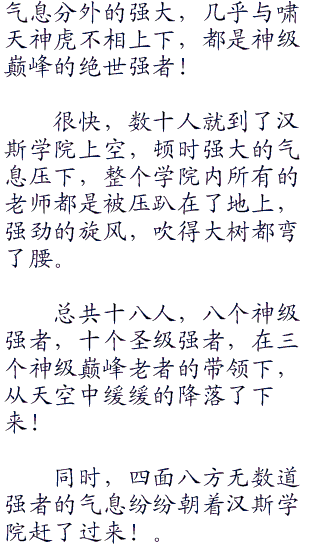 气息分外的强大，几乎与啸
天神虎不相上下，都是神级
巅峰的绝世强者！
很快，数十人就到了汉
斯学院上空，顷时强大的气
息压下，整个学院内所有的
老师都是被压趴在了地上，
强劲的旋风，吹得大树都弯
了腰。
总共十八人，八个神级
强者，十个圣级强者，在三
个神级巅峰老者的带领下，
从天空中缓缓的降落了下
来！
同时，四面八方无数道
强者的气息纷纷朝着汉斯学
院赶了过来！。